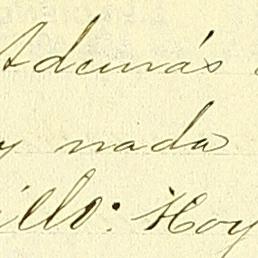 Además
y nada
illo. Hoy